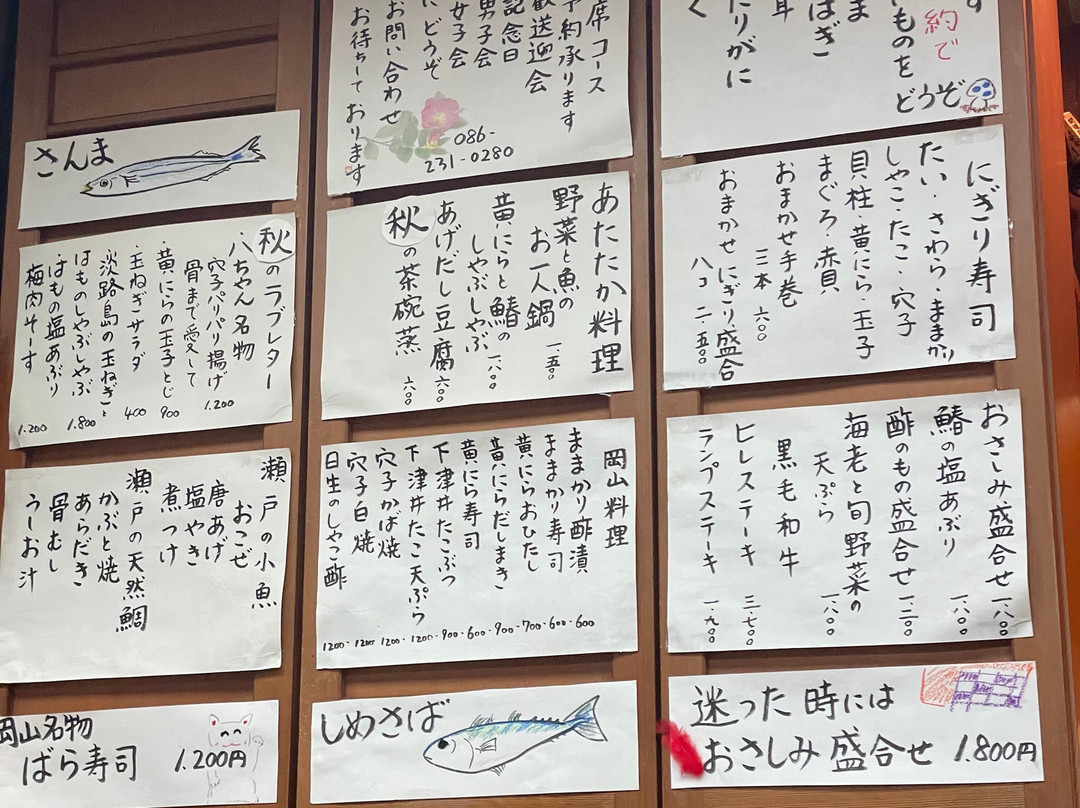 席コース
予約承ります
歓送迎会
記念日
男子会
女子会
にどうぞ
お問い合わせ
お待ちして おります
-086-
231-0280
す
約で
ものを
どうぞ
ま
はぎ
耳
たりがに
く
にぎり寿司
たい・さわら・ままかり
しゃこ・たこ・穴子
貝柱・黄にら・玉子
まぐろ・赤貝
おまかせ手巻
三本 六〇〇
おまかせにぎり盛合
八コ 二・五〇〇
あたたか料理
野菜と魚の
お一人鍋
一・五〇〇
黄にらと鰆の
しゃぶしゃぶ
一・八〇〇
あげだし豆腐 六〇〇
秋の茶碗蒸 六〇〇
さんま
秋のラブレター
・八ちゃん名物
穴子パリパリ揚げ
骨まで愛して 1.200
・黄にらの玉子とじ 900
・玉ねぎサラダ 400
淡路島の玉ねぎと
はものしゃぶしゃぶ 1.800
・はもの塩あぶり
梅肉そーす 1.200
おさしみ盛合せ 一・八〇〇
鰆の塩あぶり 一・八〇〇
酢のもの盛合せ 一・二〇〇
海老と旬野菜の
天ぷら 一・八〇〇
黒毛和牛
ヒレステーキ 三・七〇〇
ランプステーキ 一・九〇〇
岡山料理
ままかり酢漬 600
ままかり寿司 600
黄にらおひたし 700
黄にらだしまき 900
黄にら寿司 600
下津井たこぶつ 900
下津井たこ天ぷら 1200
穴子かば焼 1200
穴子白焼 1200
日生のしゃっ酢 1200
瀬戸の小魚
おこぜ
唐あげ
塩やき
煮つけ
瀬戸の天然鯛
かぶと焼
あらだき
骨むし
うしお汁
岡山名物
ばら寿司 1.200円
しめさば
迷った時には
おさしみ盛合せ 1.800円